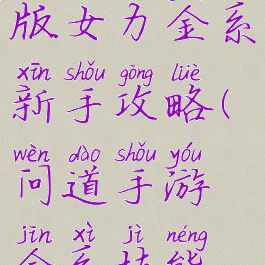 版女力金系
xīn shǒu gōng lüè
新手攻略(
wèn dào shǒu yóu
问道手游
jīn xì jì néng
金系技能